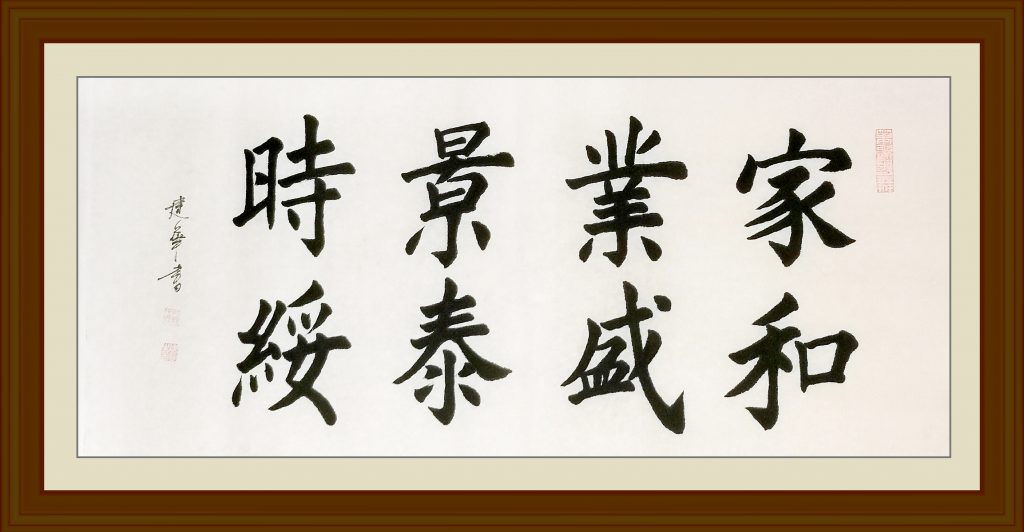 家和
業盛
景泰
時綏
建華書